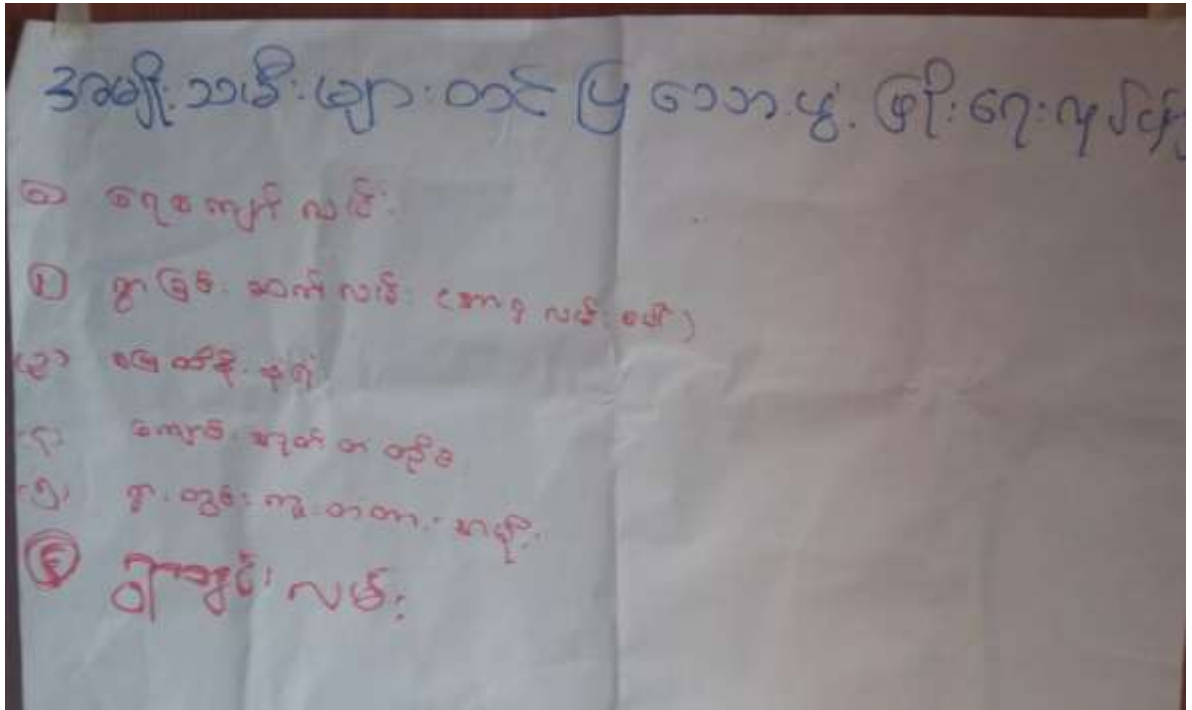 အမျိုးသမီးများတင်ပြသောဖွံ့ဖြိုးရေးလုပ်ငန်း
(၁) ရေစကျင်လမ်း
(၂) ရွာခြင်းဆက်လမ်း (အာရှလမ်းပေါ်)
(၃) မြေထိန်းနံရံ
(၄) ကျောင်းအုတ်တတိုင်
(၅) ရွာတွင်းကူးတံတား
(၆) ရွာတွင်းလမ်း